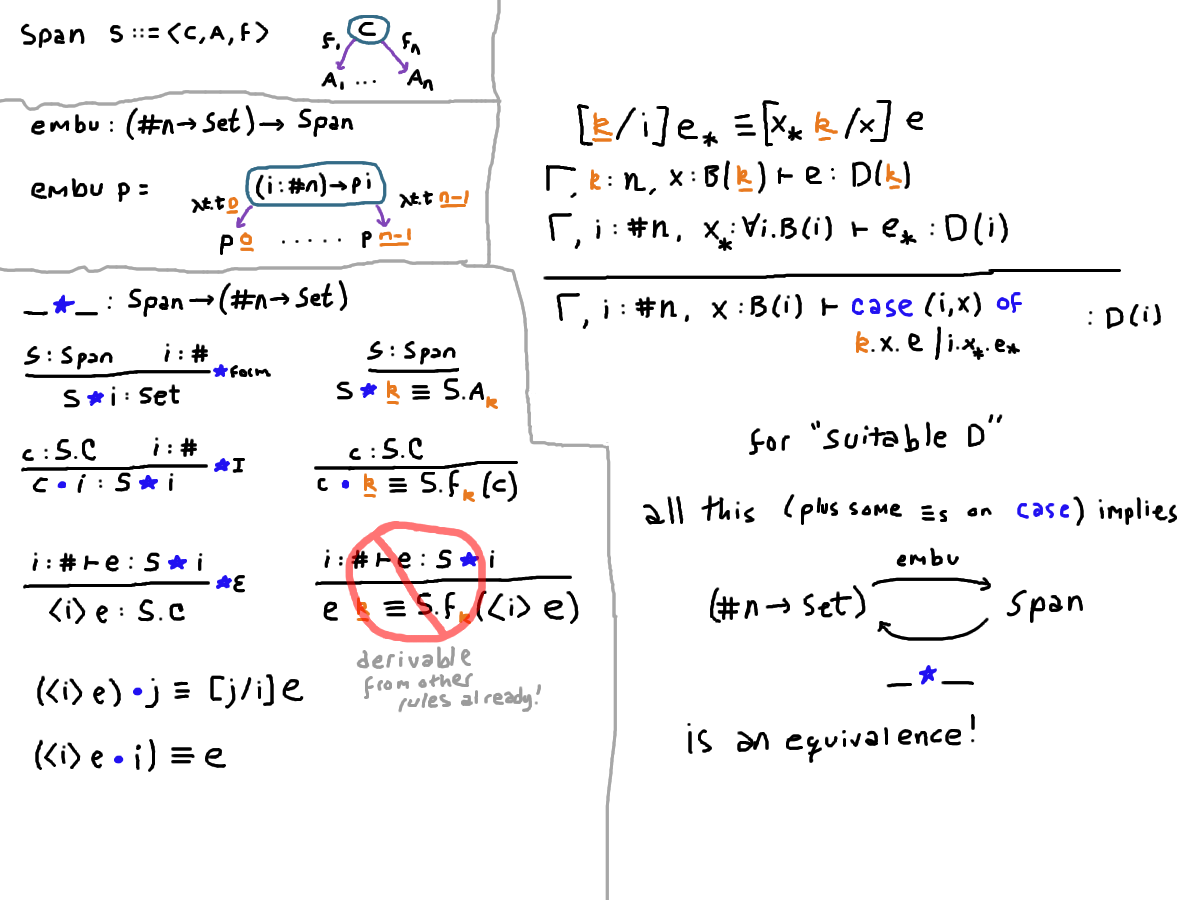 Span S ::= <C, A, f>
C
f₁ fₙ
A₁ ... Aₙ
embu : (#n → Set) → Span
embu p =
(i : #n) → p i
λt.t 0 λt.t n-1
p 0 ..... p n-1
_★_ : Span → (#n → Set)
S : Span i : #
★Form
S ★ i : Set
S : Span
S ★ k ≡ S.Aₖ
c : S.C i : #
★I
c • i : S ★ i
c : S.C
c • k ≡ S.fₖ (c)
i : # ⊢ e : S ★ i
★E
<i> e : S.C
i : # ⊢ e : S ★ i
e k ≡ S.fₖ (<i> e)
derivable
from other
rules already!
(<i> e) • j ≡ [j/i] e
(<i> e • i) ≡ e
[k/i] e* ≡ [x* k/x] e
Γ, k : n, x : B(k) ⊢ e : D(k)
Γ, i : #n, x* : ∀i.B(i) ⊢ e* : D(i)
Γ, i : #n, x : B(i) ⊢ case (i,x) of : D(i)
k.x.e | i.x*.e*
for "suitable D"
all this (plus some ≡s on case) implies
embu
(#n → Set) Span
_★_
is an equivalence!